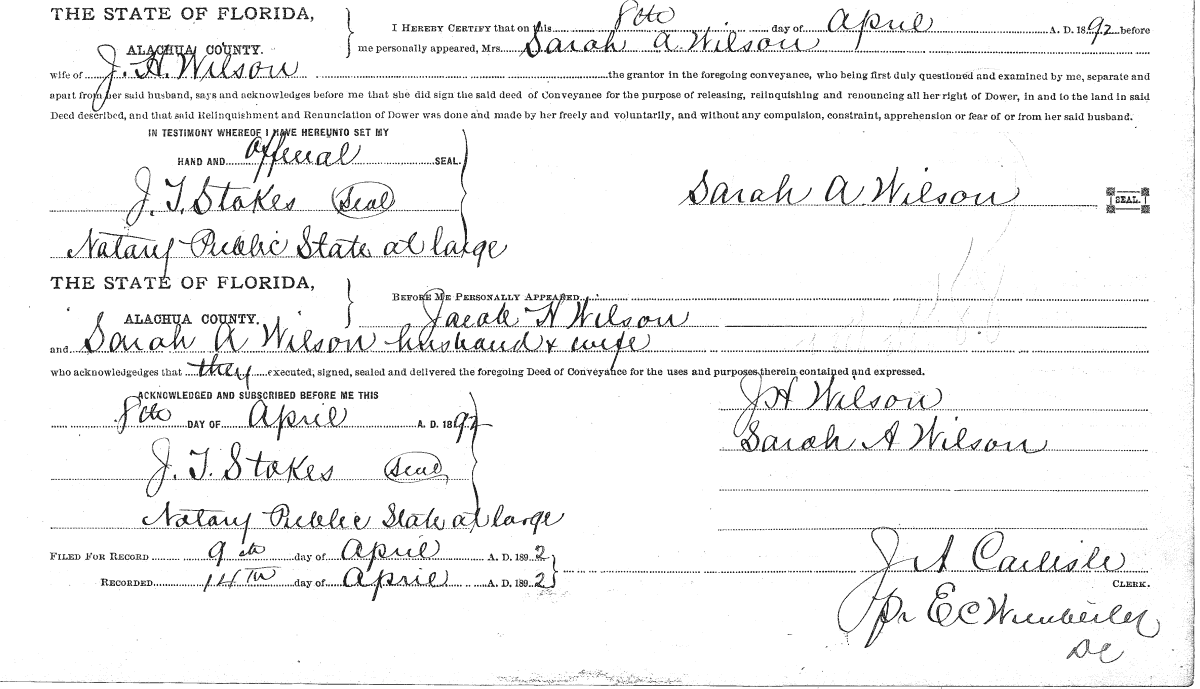 THE STATE OF FLORIDA,
ALACHUA COUNTY.
I HEREBY CERTIFY that on this 8th day of April A. D. 1892 before
me personally appeared, Mrs. Sarah A Wilson
wife of J. H. Wilson the grantor in the foregoing conveyance, who being first duly questioned and examined by me, separate and
apart from her said husband, says and acknowledges before me that she did sign the said deed of Conveyance for the purpose of releasing, relinquishing and renouncing all her right of Dower, in and to the land in said
Deed described, and that said Relinquishment and Renunciation of Dower was done and made by her freely and voluntarily, and without any compulsion, constraint, apprehension or fear of or from her said husband.
IN TESTIMONY WHEREOF I HAVE HEREUNTO SET MY
HAND AND official SEAL.
J. T. Stokes (Seal)
Sarah A Wilson SEAL.
Notary Public State at large
THE STATE OF FLORIDA,
ALACHUA COUNTY.
BEFORE ME PERSONALLY APPEARED
Jacob H Wilson
and Sarah A Wilson husband & wife
who acknowledgedges that they executed, signed, sealed and delivered the foregoing Deed of Conveyance for the uses and purposes therein contained and expressed.
ACKNOWLEDGED AND SUBSCRIBED BEFORE ME THIS
8th DAY OF April A. D. 1892
J H Wilson
Sarah A Wilson
J. T. Stokes (Seal)
Notary Public State at large
FILED FOR RECORD 9th day of April A. D. 1892
RECORDED 14TH day of April A. D. 1892
J A Carlisle
CLERK.
pr E C Wimberley
DC